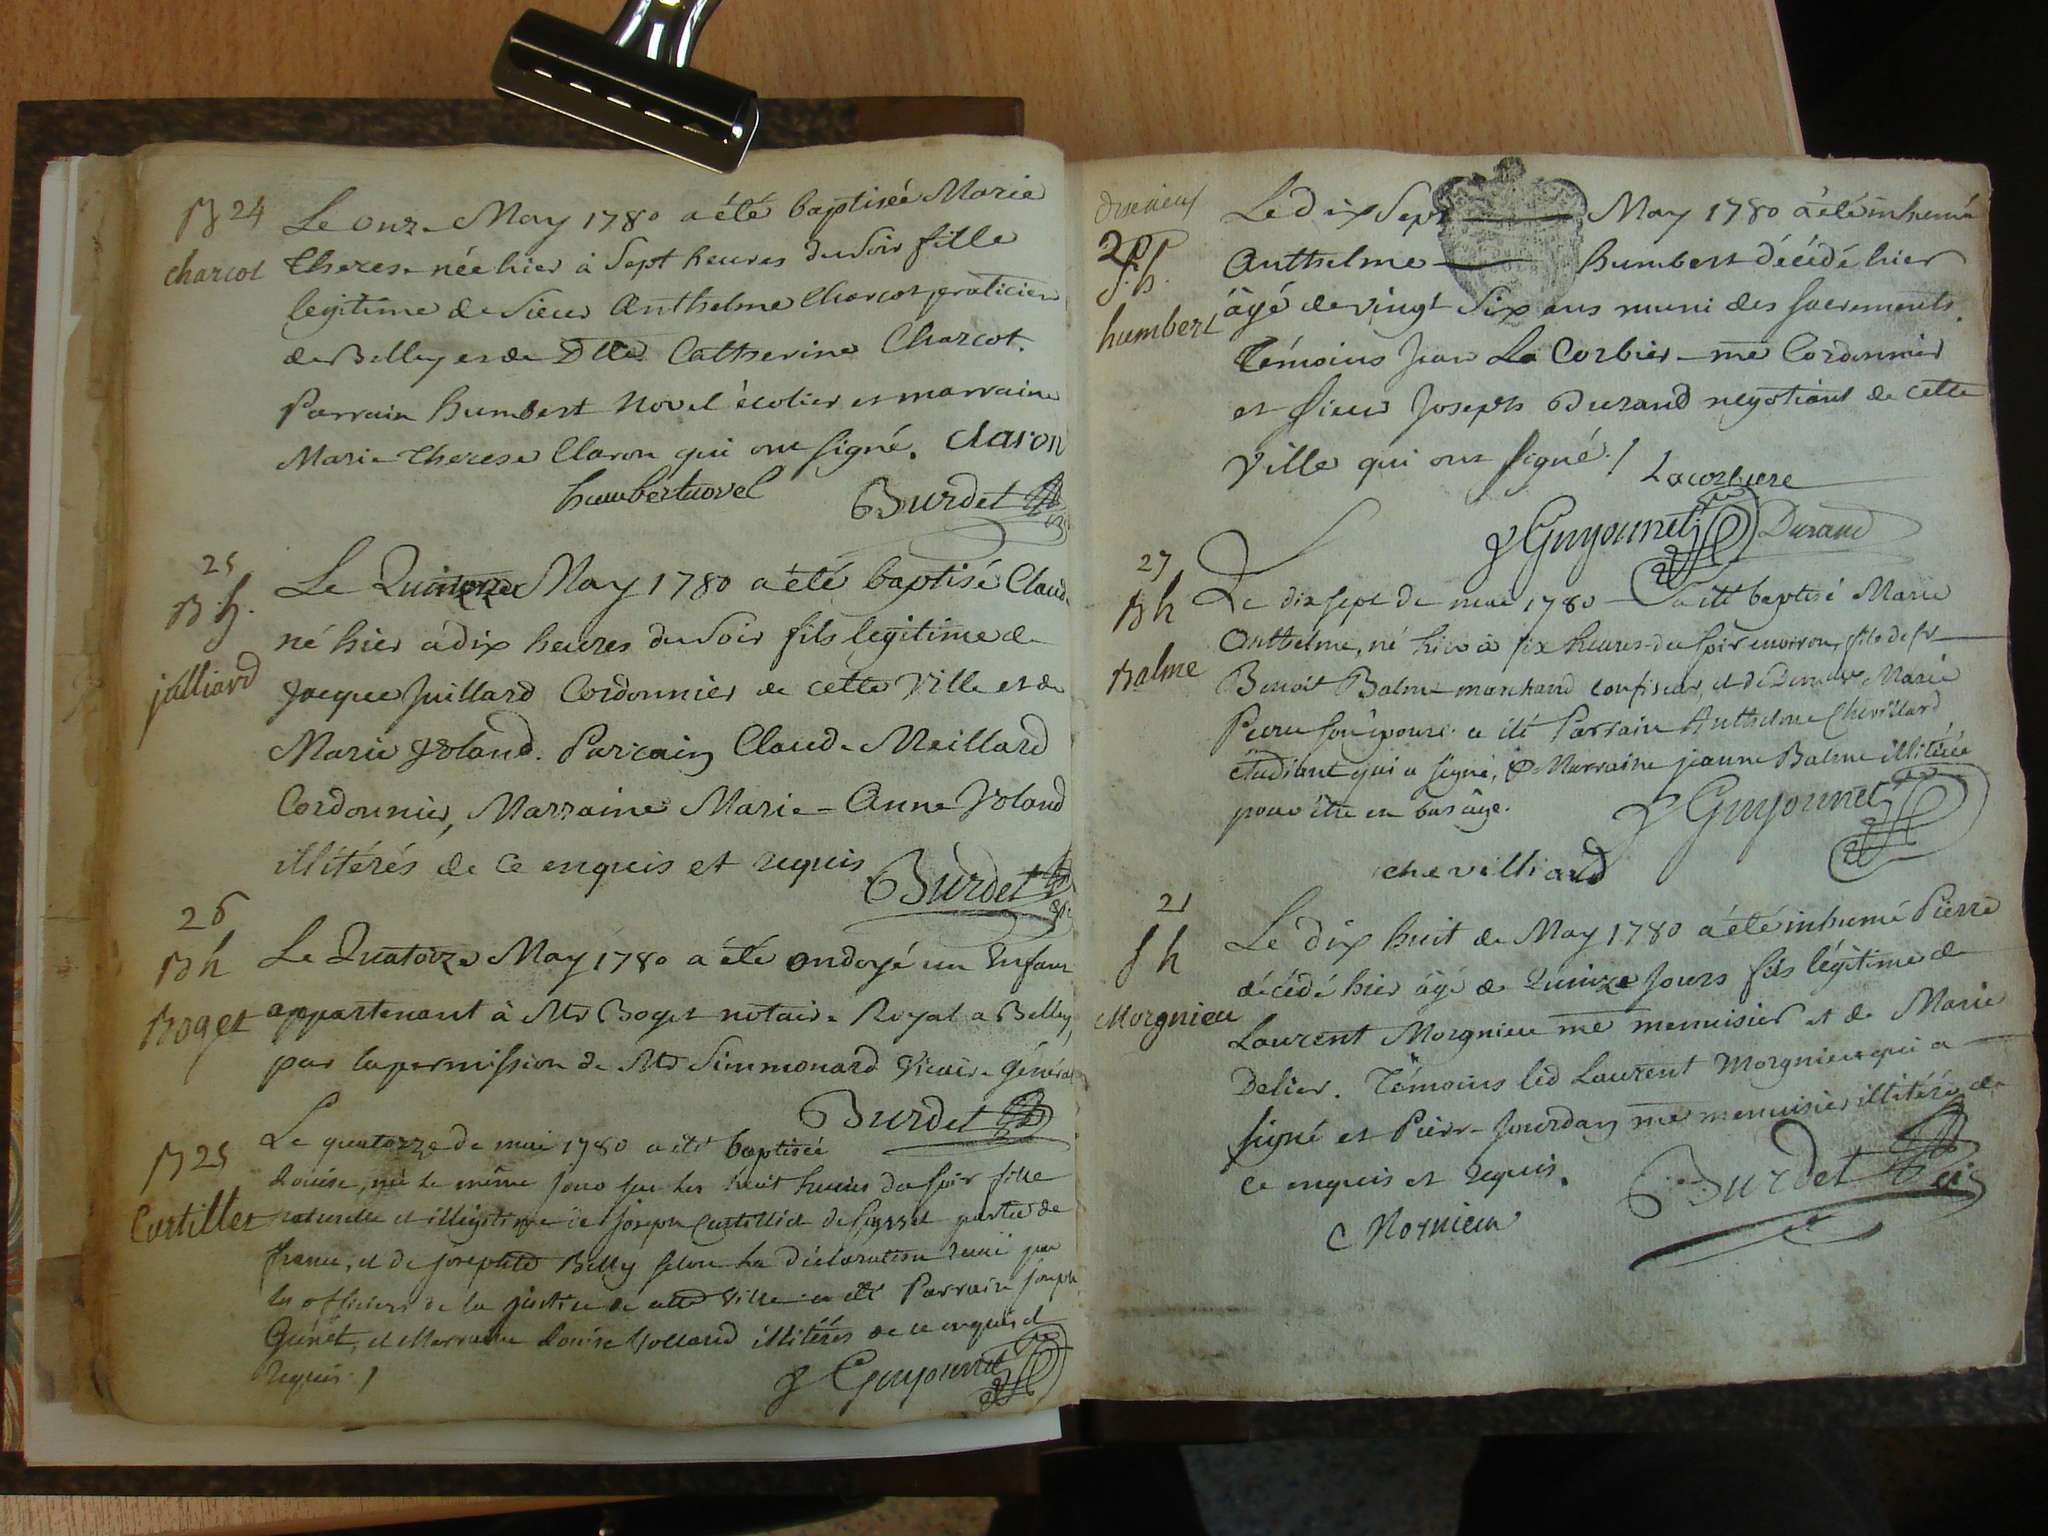 B 24
charcot
Le onze May 1780 a été baptisée Marie
Therese née hier à Sept heures du Soir fille
legitime de Sieur Anthelme Charcot praticien
de Belley et de Dlle Catherine Charcot.
Parrain humbert Novel écolier et marraine
Marie Therese Claron qui ont signé. Claron
humbertnovel Burdet
25
B h.
julliard
Le Quinze May 1780 a été baptisé Claude
né hier à dix heures du Soir fils legitime de
Jacque Juillard Cordonnier de cette Ville et de
Marie Voland. Parrain Claude Meillard
Cordonnier, Marraine Marie-Anne Voland
illitérés de ce enquis et requis. Burdet
26
B h
Boget
Le Quatorze May 1780 a été ondoyé un Enfant
appartenant à Mr Boget notaire Royal a Belley,
par la permission de Mr Simmonard Vicaire général
Burdet
B 25
Curtillet
Le quatorze de mai 1780 a été baptisée
Louise, née le même jour sur les huit heures du soir fille
naturelle et illégitime de joseph Curtilliet de seyssel partie de
france, et de josephte Billy selon la déclaration par
les officiers de la justice de cette Ville a été Parrain joseph
Genêt, et Marraine Louise Volland illitérés de ce enquis et
requis. Guyounet
20
S. h.
humbert
Le dix Sept May 1780 a été inhumé
Anthelme humbert décédé hier
âgé de vingt Six ans muni des sacrements.
Témoins Jean La Corbier me Cordonnier
et Sieur Joseph Durand negotiant de cette
Ville qui ont signé. / Lacorbiere
Guyounet Durand
27
B h
Balme
Le dix sept de mai 1780 a été baptisé Marie
Anthelme, né hier à six heures du soir environ, fils de sr
Benoit Balme marchand confiseur, et de Marie
son épouse. a été Parrain Anthelme Chevillard,
étudiant qui a signé, & Marraine jeanne Balme illitérée
pour être en bas âge. Guyounet
chevilliard
21
S h
Morgnieu
Le dix huit de May 1780 a été inhumé Pierre
décédé hier âgé de Quinze Jours fils légitime de
Laurent Morgnieu me menuisier et de Marie
Delier. Témoins led Laurent Morgnieu qui a
signé et Pierre Jourdan me menuisier illitéré de
ce enquis et requis. Burdet
Mornieu